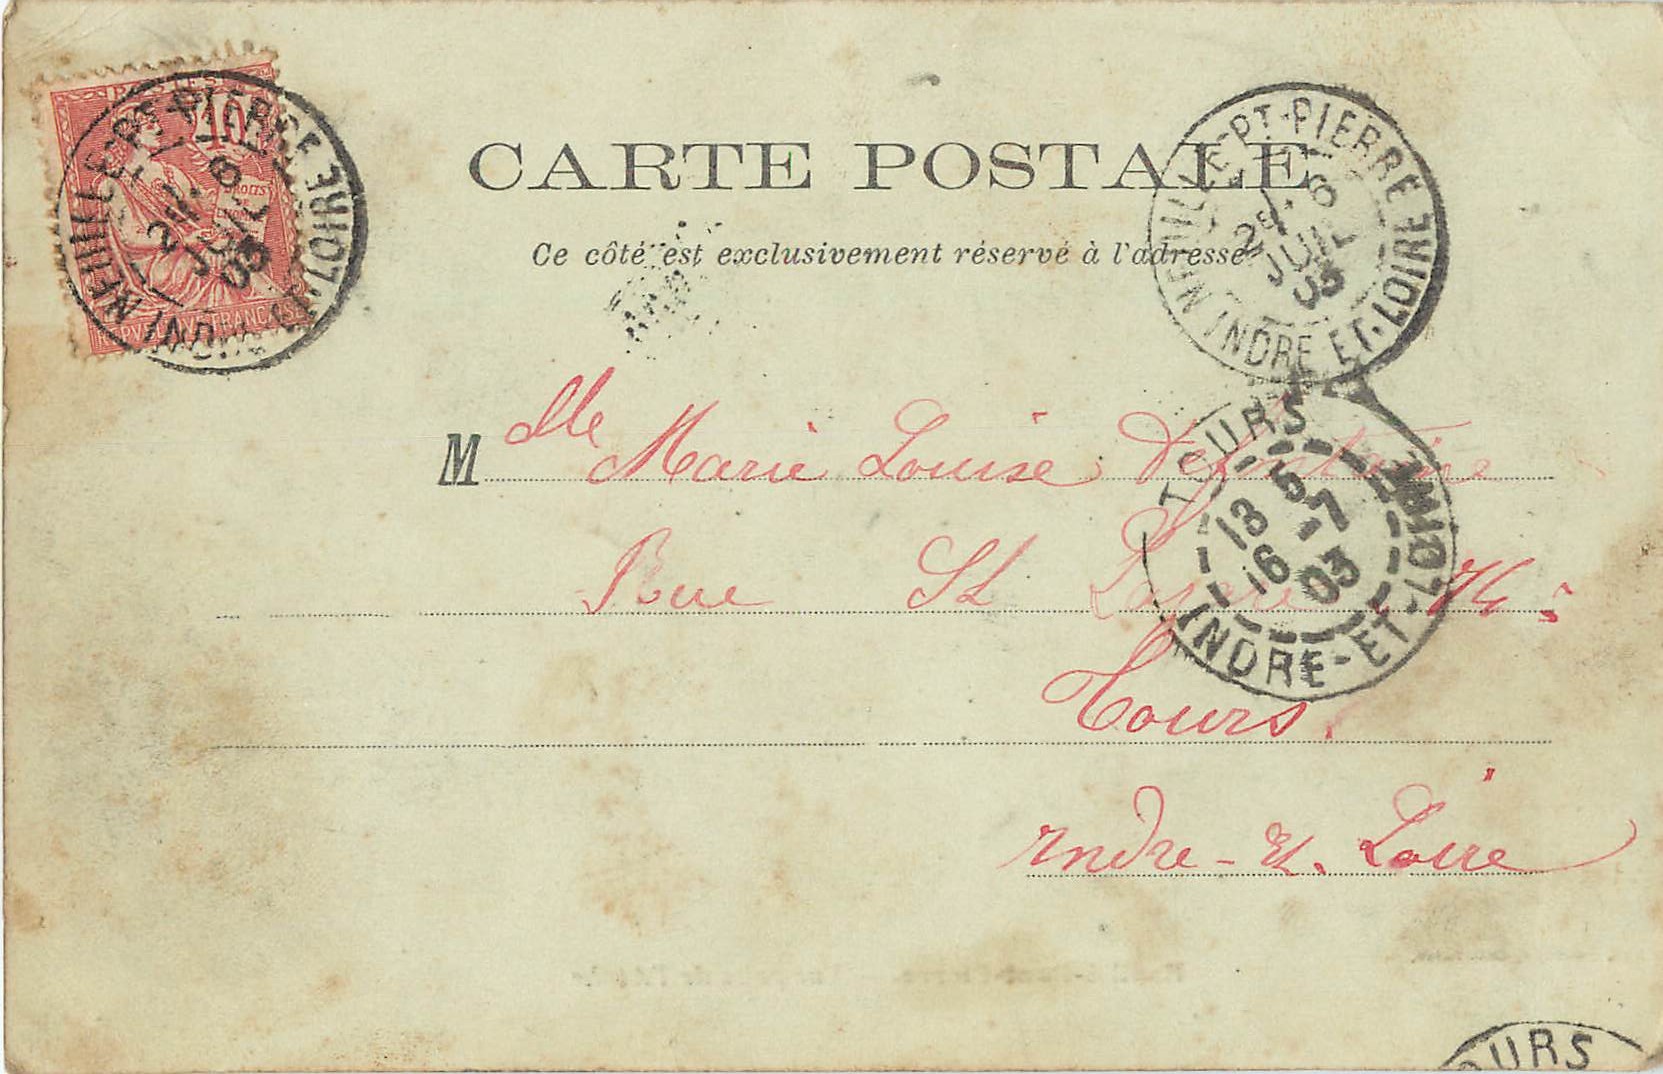 POSTES
10
DROITS
DE
L'HOMME
NEUILLE-PT-PIERRE
2E
6
JUIL
03
INDRE
LOIRE
CARTE POSTALE
Ce côté est exclusivement réservé à l'adresse
NEUILLE-PT-PIERRE
2E
6
JUIL
03
INDRE ET-LOIRE
Mlle Marie Louise Defontaine
Rue St
Tours.
Indre-et-Loire
TOURS
13 5
16 -7
03
INDRE-ET-LOIRE
TOURS